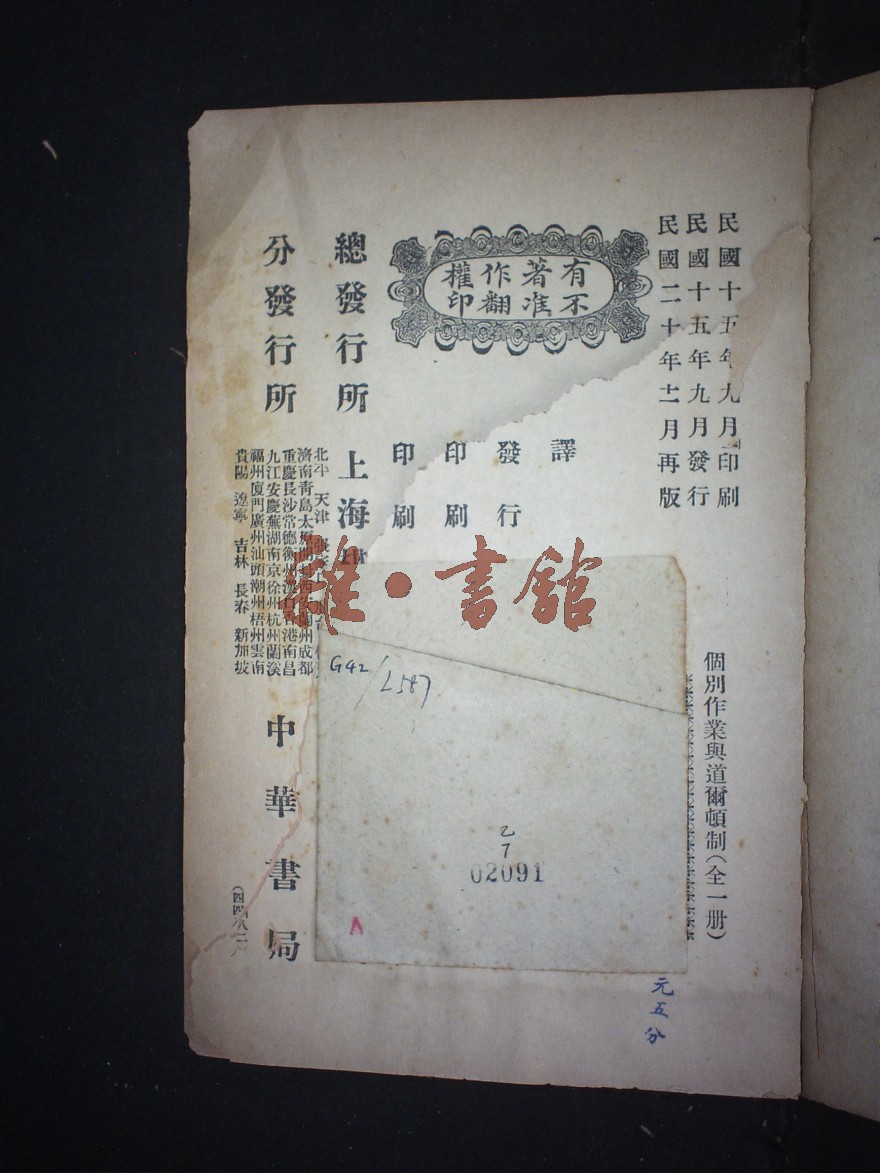 民國十五年九月印刷
民國十五年九月發行
民國二十年十二月再版
個別作業與道爾頓制(全一册)
有著作權
不准翻印
譯
發行
印刷
印刷
總發行所
上海
分發行所
北平 天津
濟南青島太原
重慶長沙常德衡州漢口香港南昌
九江安慶蕪湖南京徐州杭州蘭溪
福州廈門廣州汕頭潮州梧州雲南
貴陽 遼寧 吉林 長春 新加坡
中華書局
雒·書館
G42/L587
乙
7
02091
A
元五分